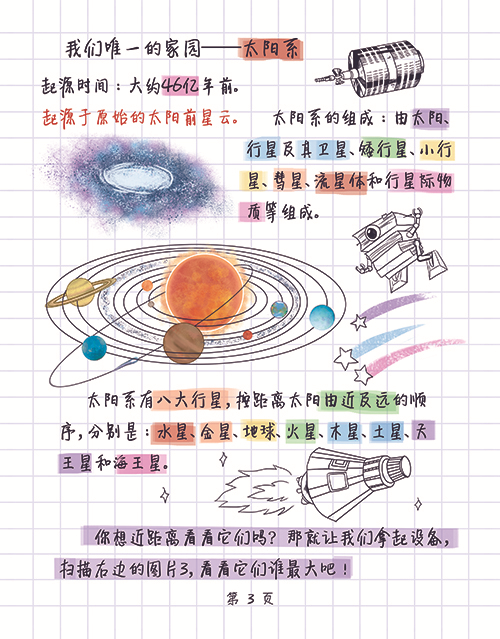 我们唯一的家园——太阳系
起源时间：大约46亿年前。
起源于原始的太阳前星云。
太阳系的组成：由太阳、
行星及其卫星、矮行星、小行
星、彗星、流星体和行星际物
质等组成。
太阳系有八大行星，按距离太阳由近及远的顺
序，分别是：水星、金星、地球、火星、木星、土星、天
王星和海王星。
你想近距离看看它们吗？那就让我们拿起设备，
扫描右边的图片3，看看它们谁最大吧！
第 3 页